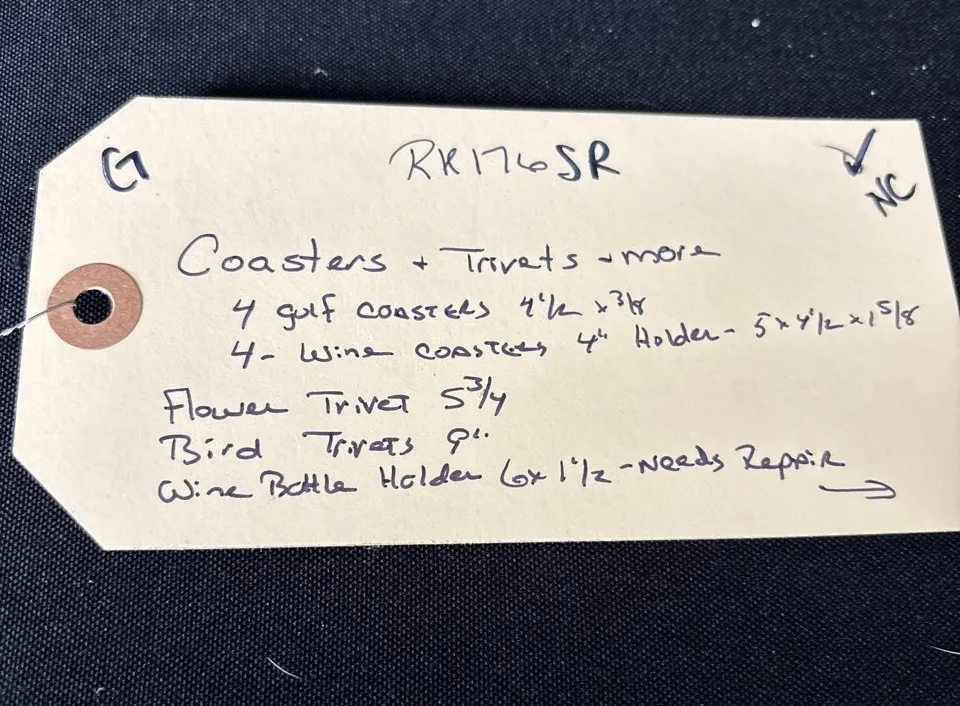 G
RR176SR
NC
Coasters + Trivets + more
4 gulf coasters 4 1/2 x 3/8
4 - Wine coasters 4" Holder - 5 x 4 1/2 x 1 5/8
Flower Trivet 5 3/4
Bird Trivets 9"
Wine Bottle Holder 6 x 1 1/2 - Needs Repair →